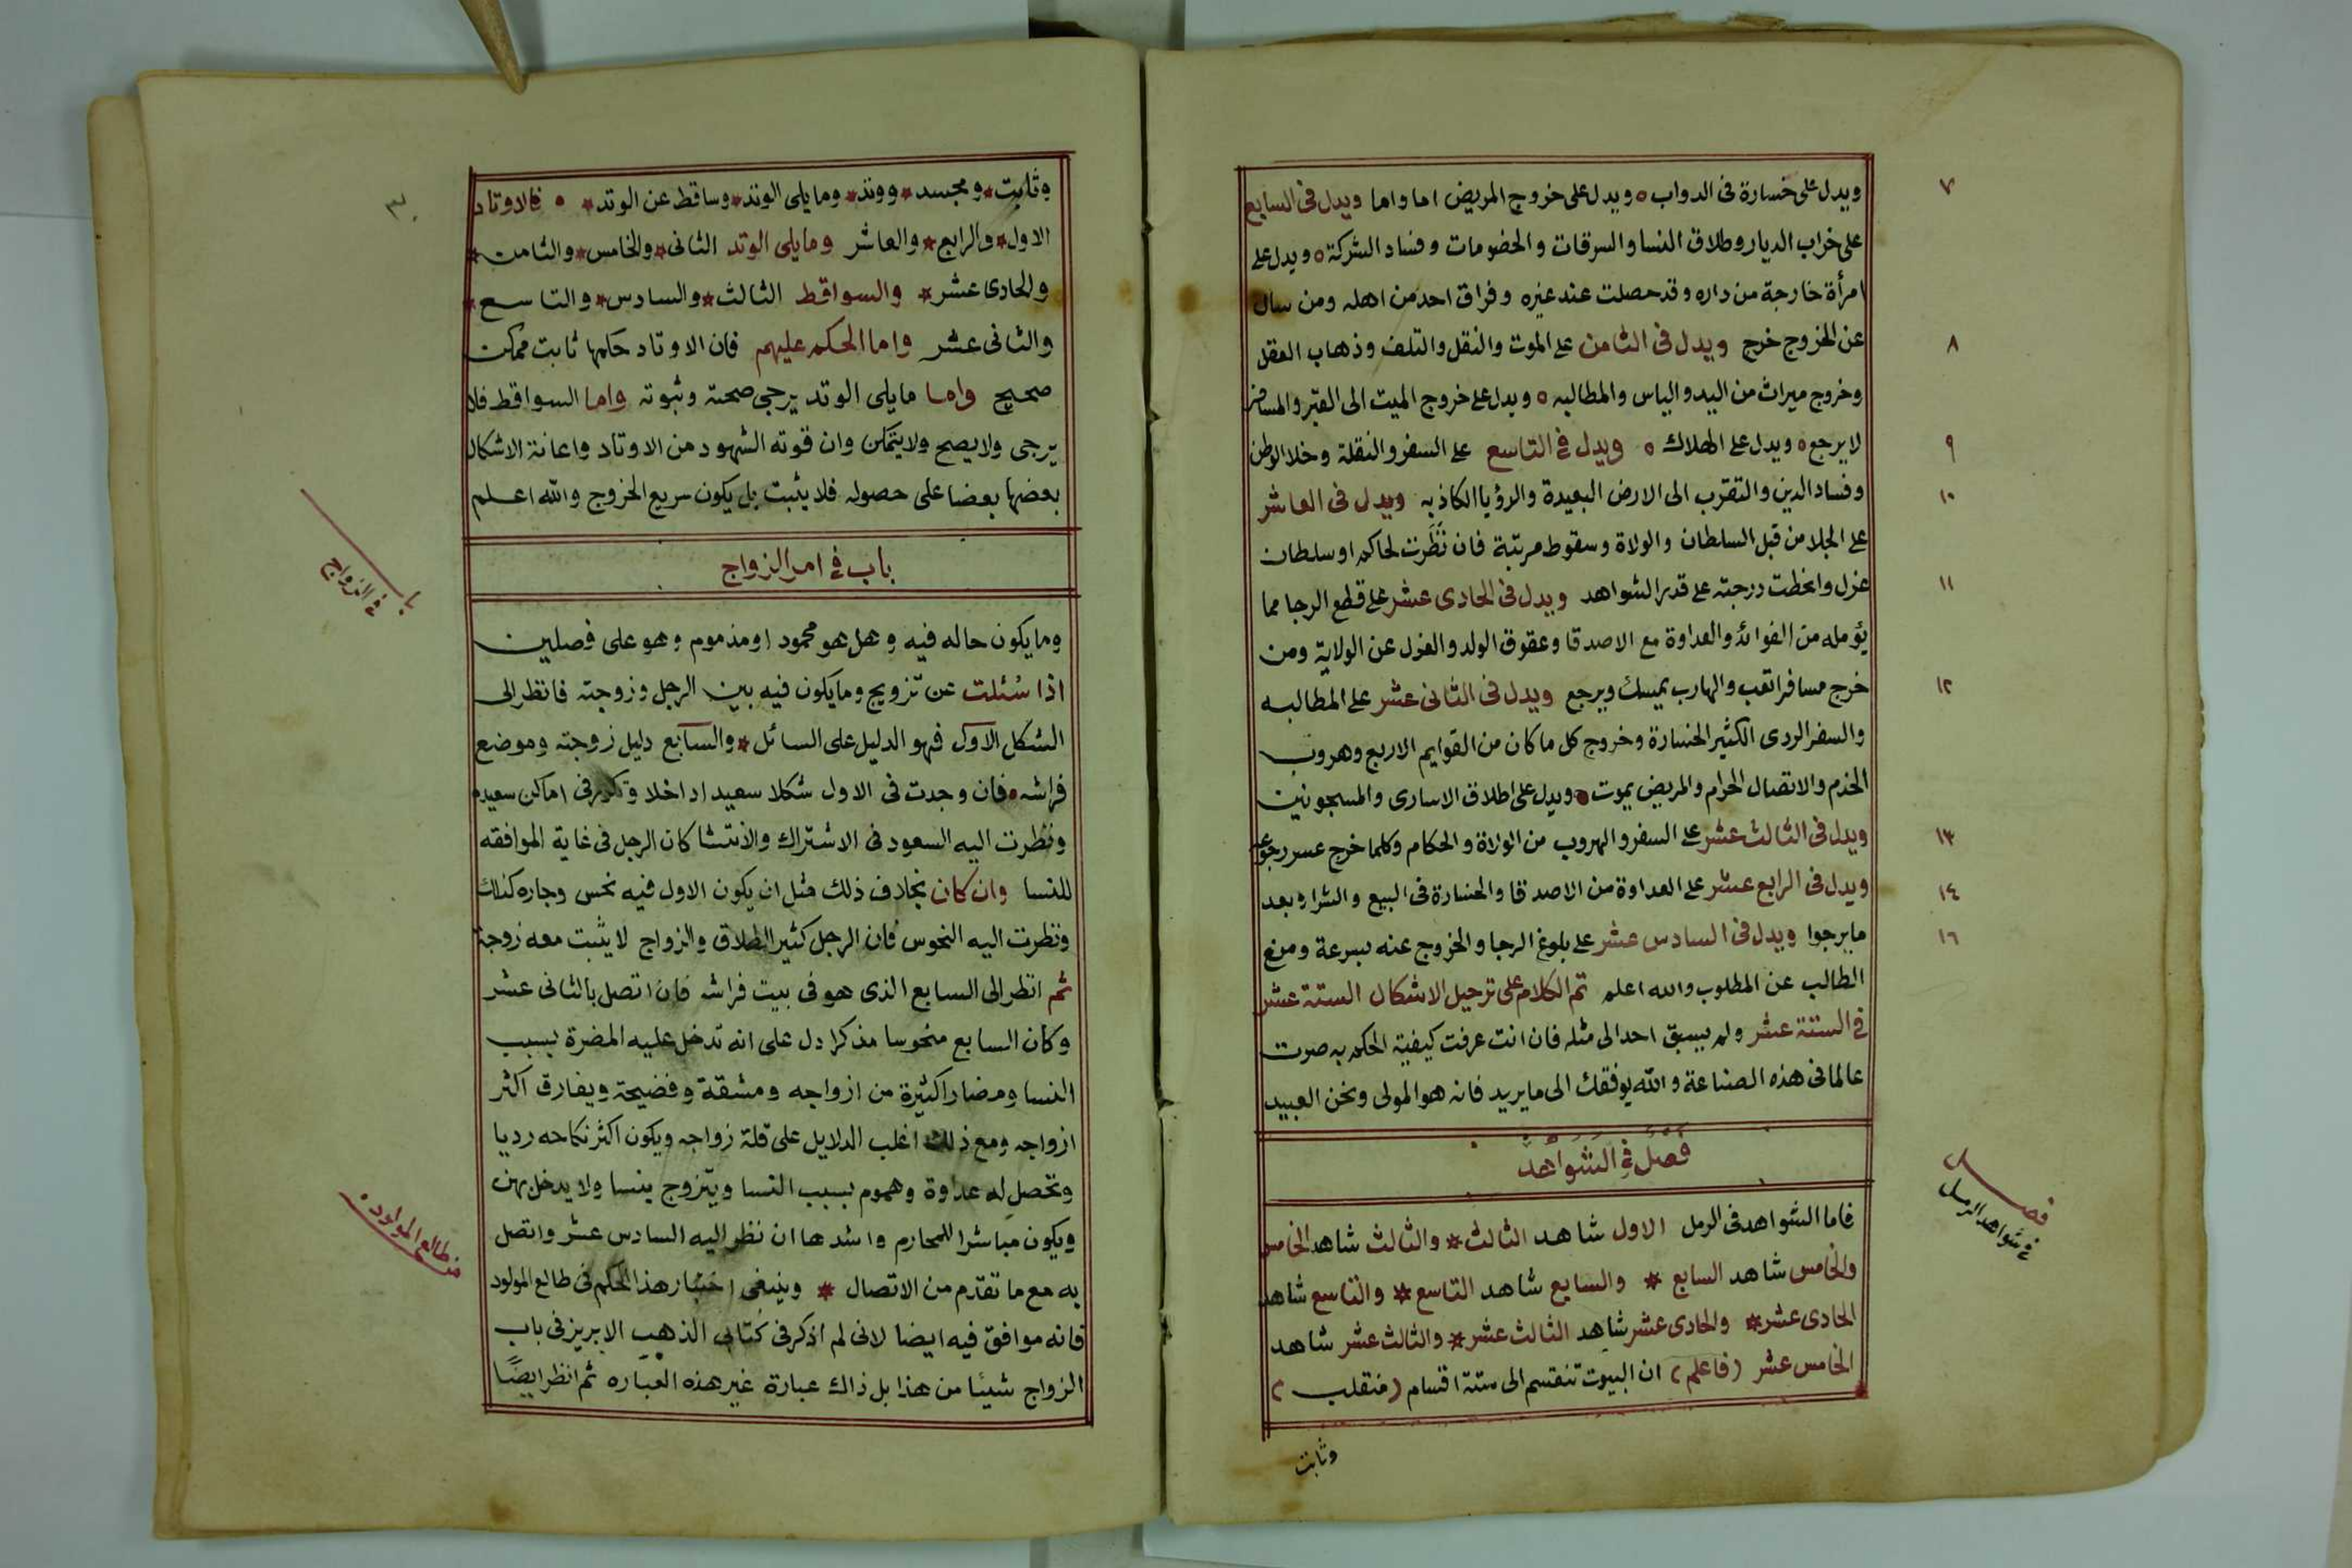 ويدل على خسارة فى الدواب ويدل على خروج المريض اما واما ويدل فى السابع
٧
على خراب الديار وطلاق النسا والسرقات والخصومات وفساد الشركة ويدل على
امرأة خارجة من داره وقد حصلت عند غيره وفراق احد من اهله ومن سال
عن الخروج خرج ويدل فى الثامن على الموت والنقل والتلف وذهاب العقل
٨
وخروج ميراث من اليد والياس والمطالبه ويدل على خروج الميت الى القبر والمسافر
لا يرجع ويدل على الهلاك ويدل فى التاسع على السفر والنقلة وخلا الوطن
٩
وفساد الدين والتقرب الى الارض البعيدة والرؤيا الكاذبه ويدل فى العاشر
١٠
على الجلا من قبل السلطان والولاة وسقوط مرتبة فان نظرت لحاكم او سلطان
عزل وانحطت درجته على قدر الشواهد ويدل فى الحادى عشر على قطع الرجا مما
١١
يؤمله من الفوائد والعداوة مع الاصدقا وعقوق الولد والعزل عن الولاية ومن
خرج مسافرا تعب والهارب يمسك ويرجع ويدل فى الثانى عشر على المطالبه
١٢
والسفر الردى الكثير الخسارة وخروج كل ما كان من القوايم الاربع وهروب
الخدم والاتصال الحرام والمريض يموت ويدل على اطلاق الاسارى والمسجونين
ويدل فى الثالث عشر على السفر والهروب من الولاة والحكام وكلما خرج عسر رجوعه
١٣
ويدل فى الرابع عشر على العداوة من الاصدقا والخسارة فى البيع والشرا وبعد
١٤
ما يرجوا ويدل فى السادس عشر على بلوغ الرجا والخروج عنه بسرعة ومنع
١٦
الطالب عن المطلوب والله اعلم تم الكلام على ترحيل الاشكال الستة عشر
فى الستة عشر ولم يسبق احد الى مثله فان انت عرفت كيفية الحكم به صرت
عالما فى هذه الصناعة والله يوفقك الى ما يريد فانه هو المولى ونحن العبيد
فصل فى الشواهد
فصل
فى شواهد الرمل
فاما الشواهد فى الرمل الاول شاهد الثالث * والثالث شاهد الخامس
والخامس شاهد السابع * والسابع شاهد التاسع * والتاسع شاهد
الحادى عشر * والحادى عشر شاهد الثالث عشر * والثالث عشر شاهد
الخامس عشر (فاعلم) ان البيوت تنقسم الى ستة اقسام (منقلب)
وثابت
٣٠
وثابت * ومجسد * ووتد * وما يلى الوتد * وساقط عن الوتد * فالاوتاد
الاول * والرابع * والعاشر وما يلى الوتد الثانى * والخامس * والثامن *
والحادى عشر * والسواقط الثالث * والسادس * والتاسع *
والثانى عشر واما الحكم عليهم فان الاوتاد حكمها ثابت ممكن
صحيح واما ما يلى الوتد يرجى صحته وثبوته واما السواقط فلا
يرجى ولا يصح ولا يتمكن وان قوته الشهود من الاوتاد واعانة الاشكال
بعضها بعضا على حصوله فلا يثبت بل يكون سريع الخروج والله اعلم
باب فى امر الزواج
باب
فى الزواج
وما يكون حاله فيه وهل هو محمود او مذموم وهو على فصلين
اذا سُئلت عن تزويج وما يكون فيه بين الرجل وزوجته فانظر الى
الشكل الاول فهو الدليل على السائل * والسابع دليل زوجته وموضع
فراشه فان وجدت فى الاول شكلا سعيدا داخلا وتكرر فى اماكن سعيده
ونظرت اليه السعود فى الاشتراك والانتشا كان الرجل فى غاية الموافقه
للنسا وان كان بخلاف ذلك مثل ان يكون الاول فيه نحس وجاره كذلك
ونظرت اليه النحوس فان الرجل كثير الطلاق والزواج لا يثبت معه زوجة
ثم انظر الى السابع الذى هو فى بيت فراشه فان اتصل بالثانى عشر
وكان السابع منحوسا مذكرا دل على انه تدخل عليه المضرة بسبب
النسا ومضارا كثيرة من ازواجه ومشقة وفضيحة ويفارق اكثر
ازواجه ومع ذلك اغلب الدلايل على قلة زواجه ويكون اكثر نكاحه رديا
وتحصل له عداوة وهموم بسبب النسا ويتزوج بنسا ولا يدخل بهن
ويكون مباشرا للمحارم واشدها ان نظر اليه السادس عشر واتصل
به مع ما تقدم من الاتصال * وينبغى اختبار هذا الحكم فى طالع المولود
طالع المولود
فانه موافق فيه ايضا لانى لم اذكر فى كتابى الذهب الابريز فى باب
الزواج شيئا من هذا بل ذاك عبارة غير هذه العباره ثم انظر ايضًا